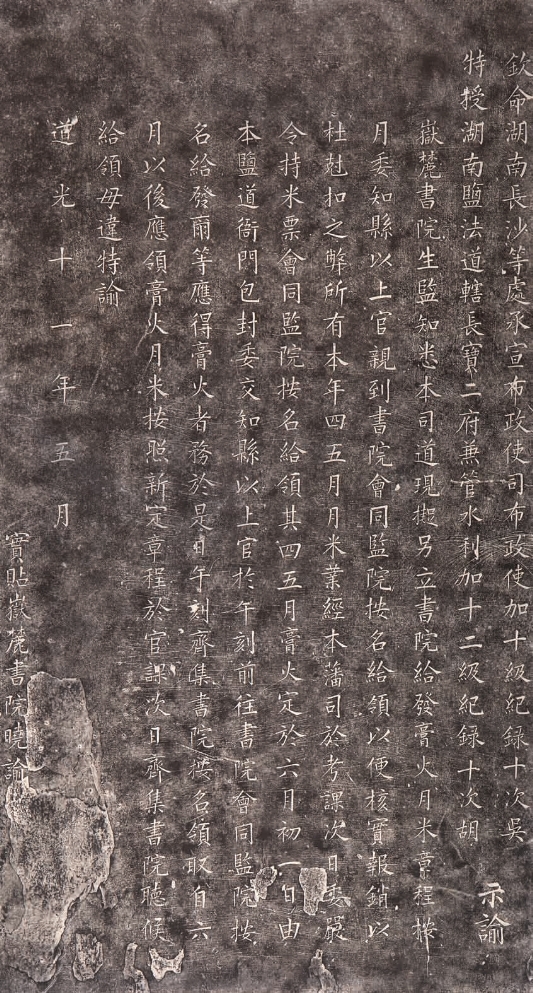 欽命湖南長沙等處承宣布政使司布政使加十級紀録十次吳
特授湖南鹽法道轄長寶二府兼管水利加十二級紀録十次胡
示諭
嶽麓書院生監知悉本司道現擬另立書院給發膏火月米章程按
月委知縣以上官親到書院會同監院按名給領以便核實報銷以
杜尅扣之弊所有本年四五月月米業經本藩司於考課次日委嚴
令持米票會同監院按名給領其四五月膏火定於六月初一日由
本鹽道衙門包封委交知縣以上官於午刻前往書院會同監院按
名給發爾等應得膏火者務於是日午刻齊集書院按名領取自六
月以後應領膏火月米按照新定章程於官課次日齊集書院聽候
給領毋違特諭
道光十一年五月
實貼嶽麓書院曉諭